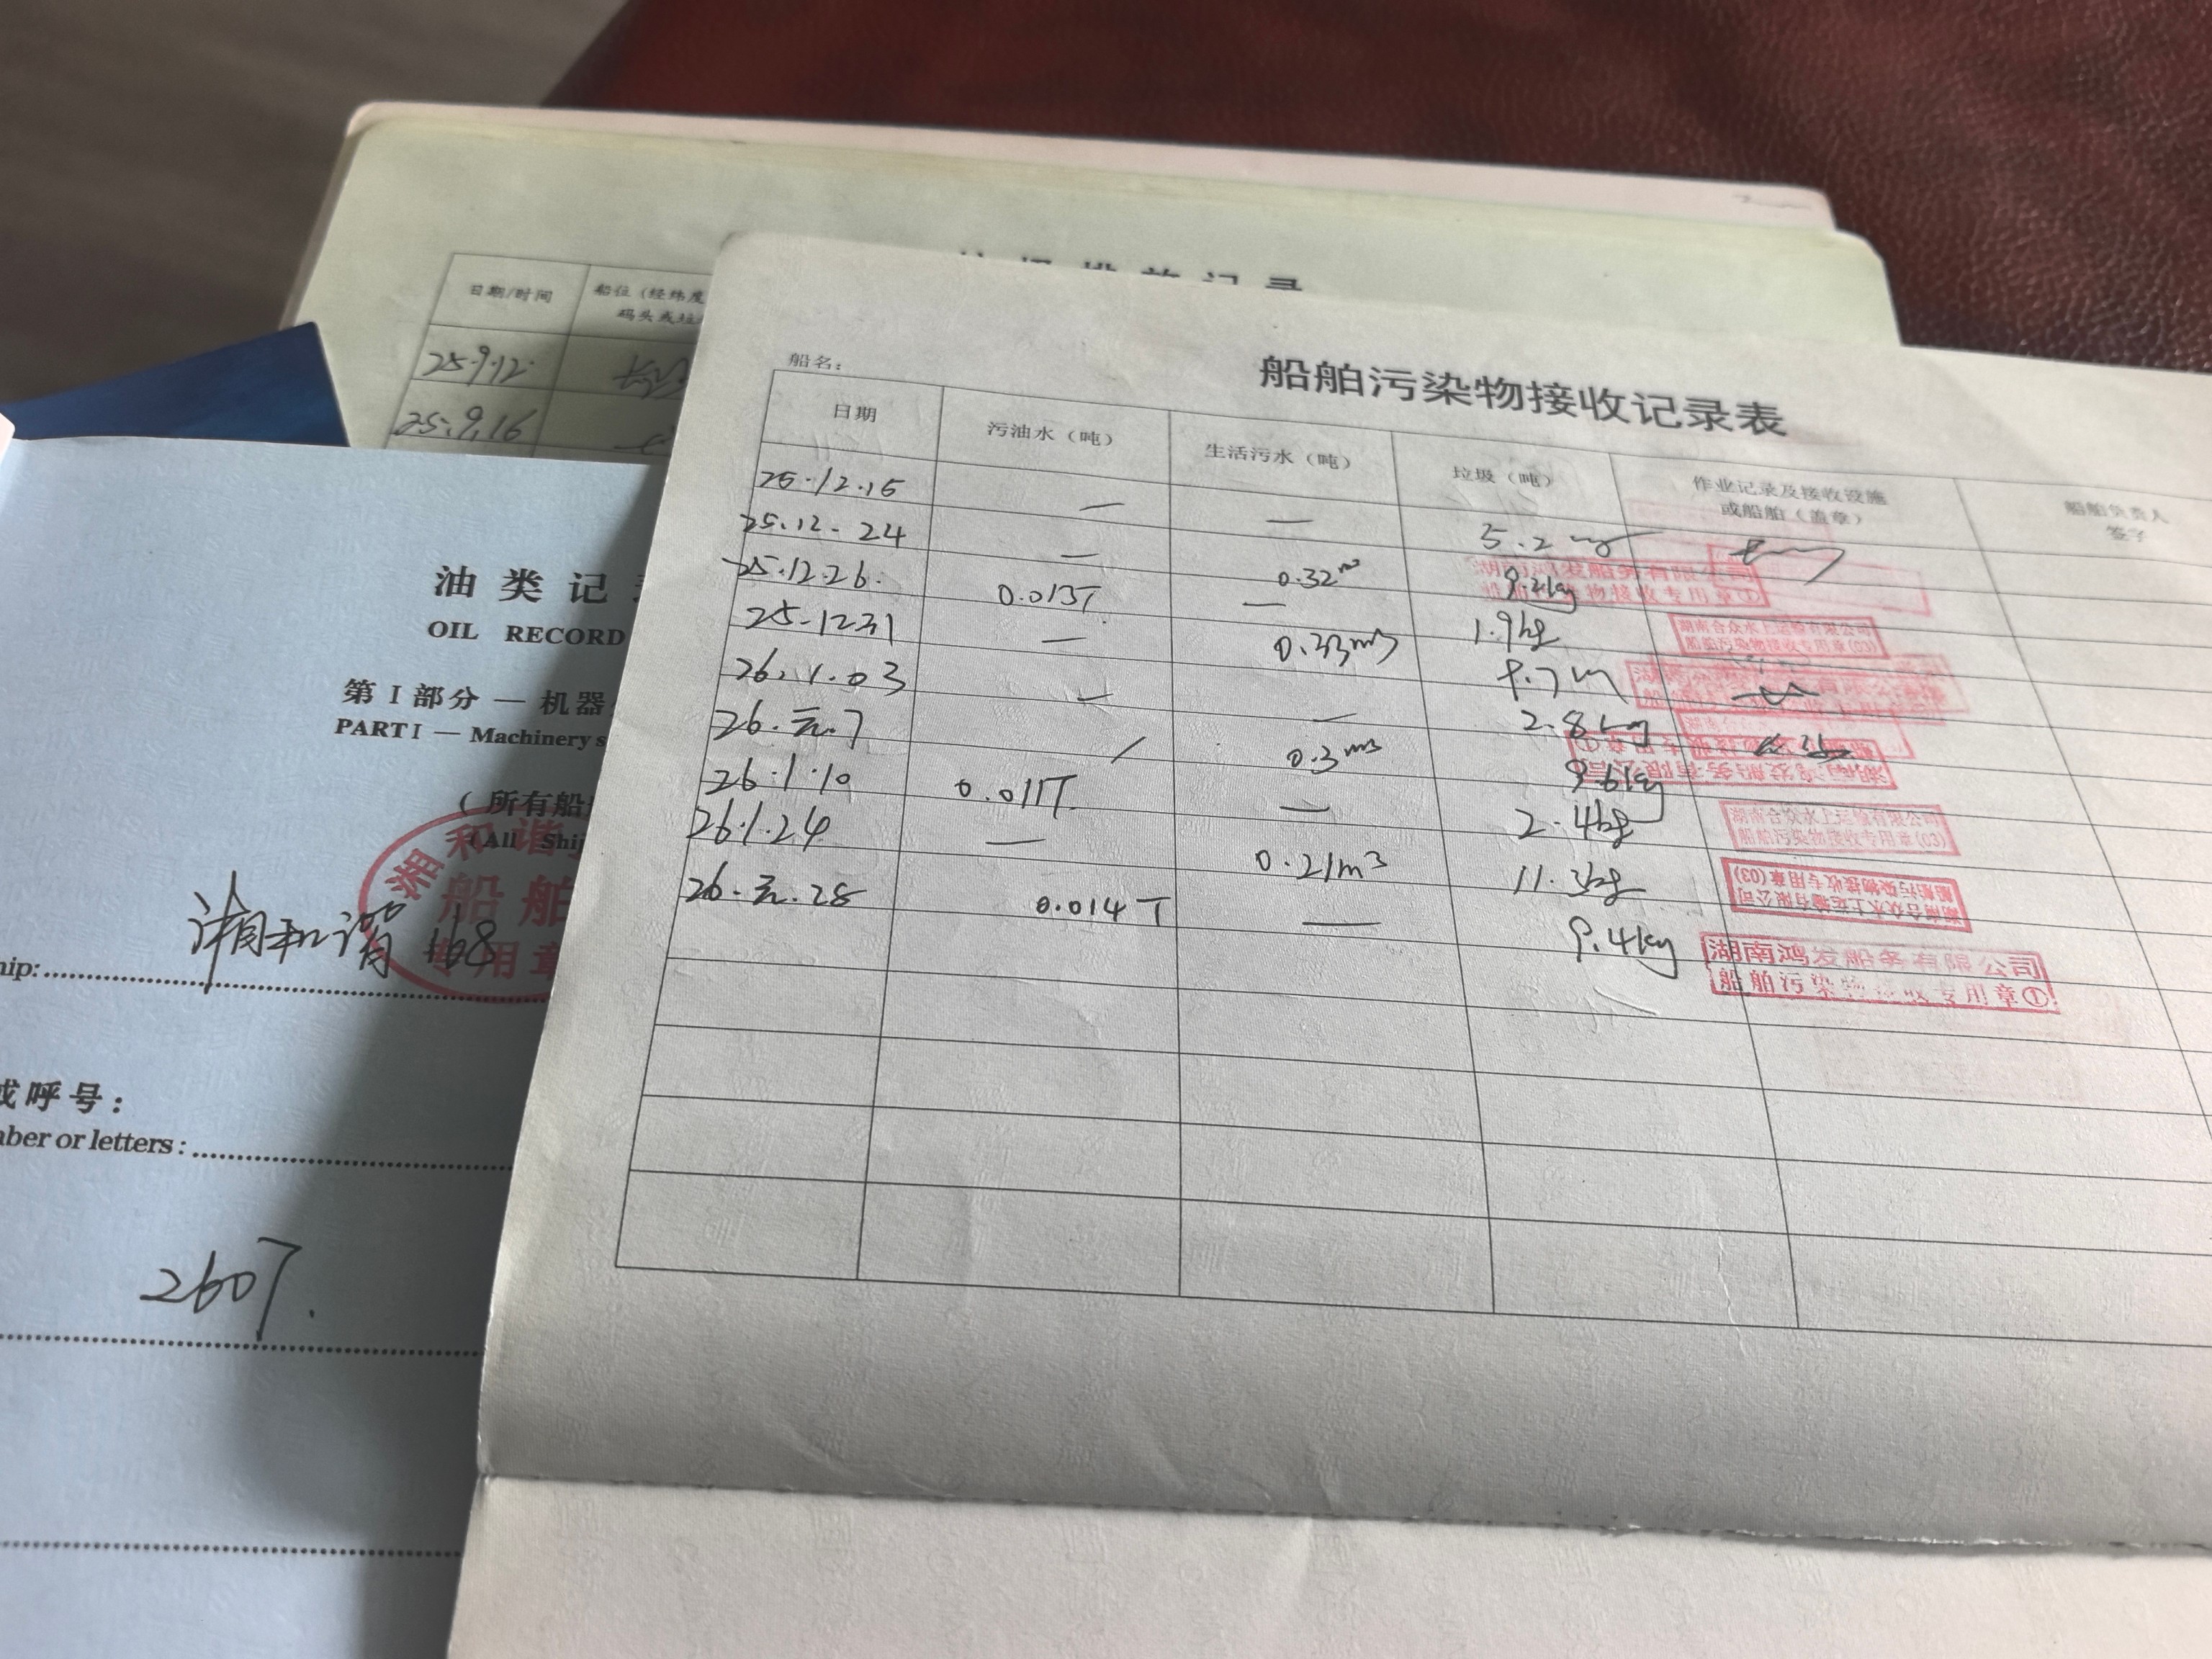 日期/时间 船位（经纬度
码头或垃
25.9.12.
25.9.16
油类记
OIL RECORD
第Ⅰ部分 — 机器
PARTⅠ — Machinery s
（所有船
(All Ship
湘和谐
船舶
专用章
湘和谐168
hip:
或呼号：
mber or letters:
260T.
船舶污染物接收记录表
船名：
日期 污油水（吨） 生活污水（吨） 垃圾（吨） 作业记录及接收设施或船舶（盖章） 船舶负责人签字
25.12.15 — — 5.2
25.12.24 — 0.32m³ 9.2kg
25.12.26. 0.013T — 1.9kg
25.12.31 — 0.33m³
26.1.03 — — 2.8kg
26.元.7 / 0.3m³ 9.6kg
26.1.10 0.011T — 2.4kg
26.1.24 — 0.21m³ 11.3kg
26.元.28 0.014T — 9.4kg
湖南鸿发船务有限公司
船舶污染物接收专用章①
湖南合众水上运输有限公司
船舶污染物接收专用章(03)
湖南鸿发船务有限公司
船舶污染物接收专用章①
湖南合众水上运输有限公司
船舶污染物接收专用章(03)
湖南合众水上运输有限公司
船舶污染物接收专用章(03)
湖南鸿发船务有限公司
船舶污染物接收专用章①